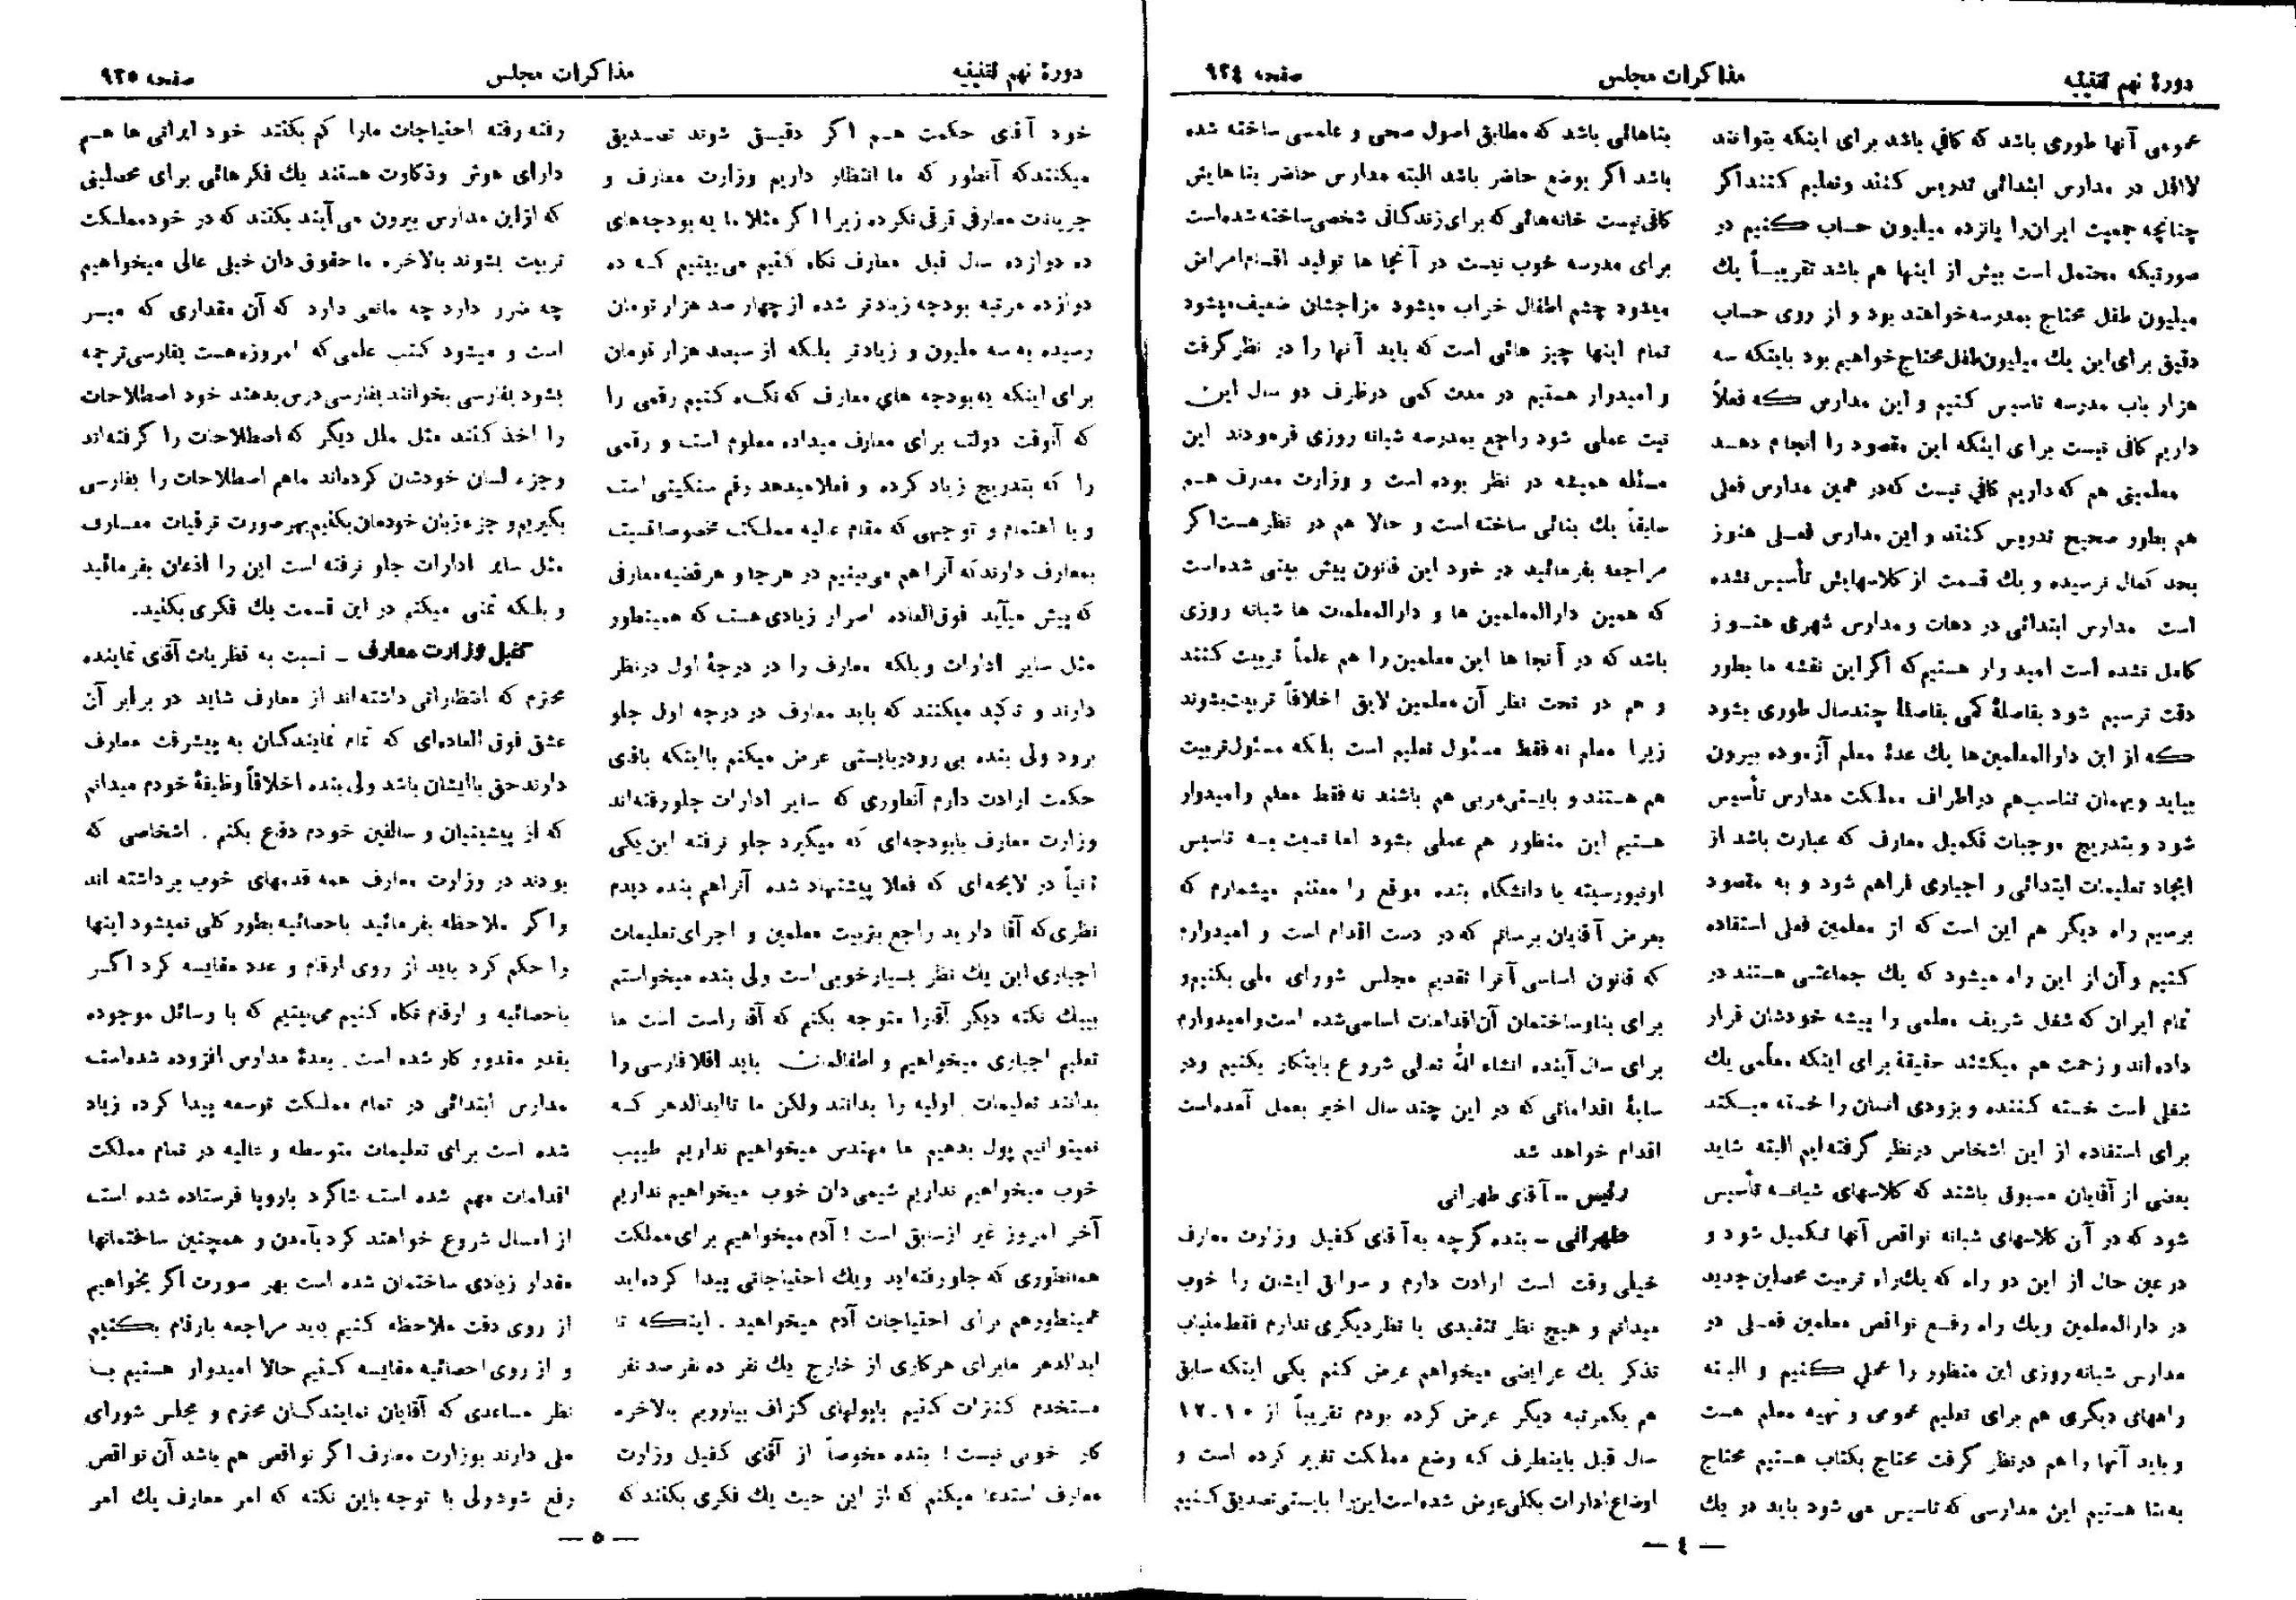 دورهٔ نهم تقنینیه
مذاکرات مجلس
صفحه ۹۲٤
عمومی آنها طوری باشد که کافی باشد برای اینکه بتوانند
لااقل در مدارس ابتدائی تدریس کنند و تعلیم کنند اگر
چنانچه جمعیت ایران را پانزده میلیون حساب کنیم در
صورتیکه محتمل است بیش از اینها هم باشد تقریباً یك
میلیون طفل محتاج بمدرسه خواهند بود و از روی حساب
دقیق برای این یك میلیون طفل محتاج خواهیم بود باینکه سه
هزار باب مدرسه تاسیس کنیم و این مدارس که فعلاً
داریم کافی نیست برای اینکه این مقصود را انجام دهد
معلمینی هم که داریم کافی نیست که در همین مدارس فعلی
هم بطور صحیح تدریس کنند و این مدارس فعلی هنوز
بحد کمال نرسیده و یك قسمت از کلاسهایش تأسیس نشده
است مدارس ابتدائی در دهات و مدارس شهری هنوز
کامل نشده است امید وار هستیم که اگر این نقشه ما بطور
دقت ترسیم شود بفاصلهٔ کمی بفاصلهٔ چند سال طوری بشود
که از این دارالمعلمین‌ها یك عدهٔ معلم آزموده بیرون
بیاید و بهمان تناسب هم در اطراف مملکت مدارس تأسیس
شود و بتدریج موجبات تکمیل معارف که عبارت باشد از
ایجاد تعلیمات ابتدائی و اجباری فراهم شود و به مقصود
برسیم راه دیگر هم این است که از معلمین فعلی استفاده
کنیم و آن از این راه میشود که یك جماعتی هستند در
تمام ایران که شغل شریف معلمی را پیشه خودشان قرار
داده‌اند و زحمت هم میکشند حقیقة برای اینکه معلمی یك
شغلی است خسته کننده و بزودی انسان را خسته میکند
برای استفاده از این اشخاص درنظر گرفته‌ایم البته شاید
بعضی از آقایان مسبوق باشند که کلاسهای شبانه تأسیس
شود که در آن کلاسهای شبانه نواقص آنها تکمیل شود و
در عین حال از این دو راه که یك راه تربیت محصلین جدید
در دارالمعلمین و یك راه رفع نواقص معلمین فعلی در
مدارس شبانه روزی این منظور را عملی کنیم و البته
راههای دیگری هم برای تعلیم عمومی و تهیه معلم هست
و باید آنها را هم درنظر گرفت محتاج بکتاب هستیم محتاج
به بنا هستیم این مدارسی که تاسیس می شود باید در یك
بناهائی باشد که مطابق اصول صحی و علمی ساخته شده
باشد اگر بوضع حاضر باشد البته مدارس حاضر بناهایش
کافی نیست خانه‌هائی که برای زندگانی شخصی ساخته شده‌است
برای مدرسه خوب نیست در آنجا ها تولید اقسام امراض
میشود چشم اطفال خراب میشود مزاجشان ضعیف میشود
تمام اینها چیز هائی است که باید آنها را در نظر گرفت
و امیدوار هستیم در مدت کمی درظرف دو سال این
نیت عملی شود راجع بمدرسه شبانه روزی فرمودند این
مسئله همیشه در نظر بوده است و وزارت معارف هم
سابقاً یك بنائی ساخته است و حالا هم در نظر هست اگر
مراجعه بفرمائید در خود این قانون پیش بینی شده‌است
که همین دارالمعلمین ها و دارالمعلمات ها شبانه روزی
باشد که در آنجا ها این معلمین را هم علماً تربیت کنند
و هم در تحت نظر آن معلمین لایق اخلاقاً تربیت بشوند
زیرا معلم نه فقط مسئول تعلیم است بلکه مسئول تربیت
هم هستند و بایستی مربی هم باشند نه فقط معلم و امیدوار
هستیم این منظور هم عملی بشود اما نسبت به تاسیس
اونیورسیته یا دانشگاه بنده موقع را مغتنم میشمارم که
بعرض آقایان برسانم که در دست اقدام است و امیدوارم
که قانون اساسی آنرا تقدیم مجلس شورای ملی بکنیم و
برای بنا و ساختمان آن اقدامات اساسی شده است و امیدوارم
برای سال آینده انشاء الله تعالی شروع باینکار بکنیم و در
سایهٔ اقداماتی که در این چند سال اخیر بعمل آمده‌است
اقدام خواهد شد
رئیس ــ آقای طهرانی
طهرانی ــ بنده گرچه به آقای کفیل وزارت معارف
خیلی وقت است ارادت دارم و سوابق ایشان را خوب
میدانم و هیچ نظر تنقیدی یا نظر دیگری ندارم فقط من‌باب
تذکر یك عرایضی میخواهم عرض کنم یکی اینکه سابق
هم یکمرتبه دیگر عرض کرده بودم تقریباً از ۱۰-۱۲
سال قبل باینطرف که وضع مملکت تغییر کرده است و
اوضاع ادارات بکلی عوض شده‌است این را بایستی تصدیق کنیم
— ٤ —
دورهٔ نهم تقنینیه
مذاکرات مجلس
صفحه ۹۲۵
خود آقای حکمت هم اگر دقیق شوند تصدیق
میکنند که آنطور که ما انتظار داریم وزارت معارف و
جریانات معارفی ترقی نکرده زیرا اگر مثلا ما به بودجه‌های
ده دوازده سال قبل معارف نگاه کنیم می‌بینیم که ده
دوازده مرتبه بودجه زیادتر شده از چهار صد هزار تومان
رسیده به سه ملیون و زیادتر بلکه از سیصد هزار تومان
برای اینکه به بودجه های معارف که نگاه کنیم رقمی را
که آنوقت دولت برای معارف میداده معلوم است و رقمی
را که بتدریج زیاد کرده و فعلا میدهد رقم سنگینی است
و با اهتمام و توجهی که مقام عالیه مملکت مخصوصا نسبت
بمعارف دارند که آنرا هم می‌بینیم در هر جا و هر قضیه معارفی
که پیش میآید فوق‌العاده اصرار زیادی هست که همینطور
مثل سایر ادارات و بلکه معارف را در درجهٔ اول درنظر
دارند و تاکید میکنند که باید معارف در درجه اول جلو
برود ولی بنده بی رودربایستی عرض میکنم با اینکه باقای
حکمت ارادت دارم آنطوری که سایر ادارات جلو رفته‌اند
وزارت معارف با بودجه‌ای که میگیرد جلو نرفته این یکی
ثانیاً در لایحه‌ای که فعلا پیشنهاد شده آنراهم بنده دیدم
نظری که آقا دارید راجع بتربیت معلمین و اجرای تعلیمات
اجباری این یك نظر بسیار خوبی است ولی بنده میخواستم
بیك نکته دیگر آقارا متوجه بکنم که آقا راست است ما
تعلیم اجباری میخواهیم و اطفالمان باید اقلا فارسی را
بدانند تعلیمات اولیه را بدانند ولکن ما تا ابدالدهر که
نمیتوانیم پول بدهیم ما مهندس میخواهیم نداریم طبیب
خوب میخواهیم نداریم شیمی دان خوب میخواهیم نداریم
آخر امروز غیر از سابق است ! آدم میخواهیم برای مملکت
همانطوری که جلو رفته‌اید و یك احتیاجاتی پیدا کرده‌اید
همینطورهم برای احتیاجات آدم میخواهید . اینکه تا
ابدالدهر ما برای هر کاری از خارج یك نفر ده نفر صد نفر
مستخدم کنترات کنیم باپولهای گزاف بیاوریم بالاخره
کار خوبی نیست ! بنده مخصوصاً از آقای کفیل وزارت
معارف استدعا میکنم که از این حیث یك فکری بکنند که
رفته رفته احتیاجات مارا کم بکنند خود ایرانی ها هم
دارای هوش و ذکاوت هستند یك فکر هائی برای محصلینی
که از این مدارس بیرون می آیند بکنند که در خود مملکت
تربیت بشوند بالاخره ما حقوق دان خیلی عالی میخواهیم
چه ضرر دارد چه مانعی دارد که آن مقداری که میسر
است و میشود کتب علمی که امروزه هست بفارسی ترجمه
بشود بفارسی بخوانند بفارسی درس بدهند خود اصطلاحات
را اخذ کنند مثل ملل دیگر که اصطلاحات را گرفته‌اند
و جزء لسان خودشان کرده‌اند ماهم اصطلاحات را بفارسی
بگیریم و جزء زبان خودمان بکنیم بهر صورت ترقیات معارف
مثل سایر ادارات جلو نرفته است این را اذعان بفرمائید
و بلکه تمنی میکنم در این قسمت یك فکری بکنید.
کفیل وزارت معارف ــ نسبت به نظریات آقای نماینده
محترم که انتظاراتی داشته‌اند از معارف شاید در برابر آن
عشق فوق العاده‌ای که تمام نمایندگان به پیشرفت معارف
دارند حق باایشان باشد ولی بنده اخلاقاً وظیفهٔ خودم میدانم
که از پیشینیان و سالفین خودم دفاع بکنم . اشخاصی که
بودند در وزارت معارف همه قدمهای خوب برداشته اند
و اگر ملاحظه بفرمائید باحصائیه بطور کلی نمیشود اینها
را حکم کرد باید از روی ارقام و عدد مقایسه کرد اگر
باحصائیه و ارقام نگاه کنیم می‌بینیم که با وسائل موجوده
بقدر مقدور کار شده است . بعدهٔ مدارس افزوده شده‌است
مدارس ابتدائی در تمام مملکت توسعه پیدا کرده زیاد
شده است برای تعلیمات متوسطه و عالیه در تمام مملکت
اقدامات مهم شده است شاگرد باروپا فرستاده شده است
از امسال شروع خواهند کرد بآمدن و همچنین ساختمانها
مقدار زیادی ساختمان شده است بهر صورت اگر بخواهیم
از روی دقت ملاحظه کنیم باید مراجعه بارقام بکنیم
و از روی احصائیه مقایسه کنیم حالا امیدوار هستیم با
نظر مساعدی که آقایان نمایندگان محترم و مجلس شورای
ملی دارند بوزارت معارف اگر نواقصی هم باشد آن نواقص
رفع شود ولی با توجه باین نکته که امر معارف یك امر
— ۵ —